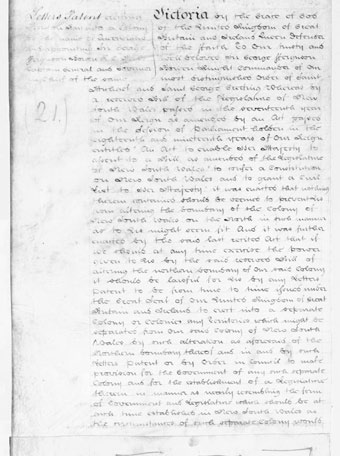 Letters Patent
Victoria by the Grace of God
of the United Kingdom of Great
Britain and Ireland Queen Defender
of the Faith To Our trusty and
well beloved Sir George Ferguson
Bowen Knight Commander of Our
most distinguished Order of Saint
Michael and Saint George Greeting Whereas by
a reserved Bill of the Legislature of New
South Wales passed in the seventeenth year
of Our Reign as amended by an Act passed
in the Session of Parliament holden in the
eighteenth and nineteenth years of Our Reign
entitled An Act to enable Her Majesty to
assent to a Bill as amended of the Legislature
of New South Wales "to confer a Constitution
on New South Wales and to grant a Civil
List to Her Majesty" it was enacted that nothing
therein contained should be deemed to prevent Us
from altering the boundary of the Colony of
New South Wales on the North in such manner
as to Us might seem fit And it was further
enacted by the said last recited Act that if
We should at any time exercise the power
given to Us by the said reserved Bill of
altering the northern boundary of Our said Colony
it should be lawful for Us by any Letters
Patent to be from time to time issued under
the Great Seal of Our United Kingdom of Great
Britain and Ireland to erect into a separate
Colony or Colonies any territories which might be
separated from Our said Colony of New South
Wales by such alteration as aforesaid of the
Northern boundary thereof and in and by such
Letters Patent or by Order in Council to make
provision for the Government of any such separate
Colony and for the establishment of a Legislature
therein in manner as nearly resembling the form
of Government and Legislature which should be at
such time established in New South Wales as
the circumstances of such separate Colony would
21